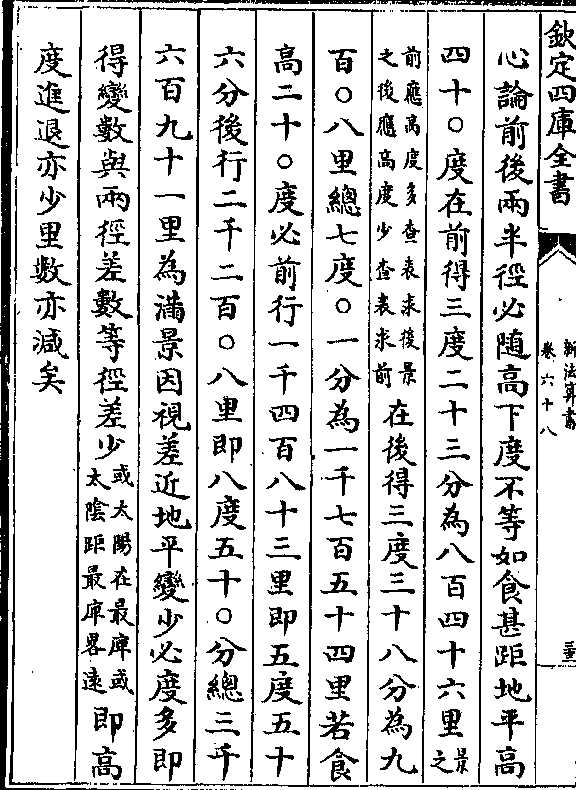 欽定四庫全書
新法算書
卷六十八
心論前後兩半徑必随高下度不等如食甚距地平高
四十〇度在前得三度二十三分為八百四十六里景之
前應高度多查表求後景
之後應高度少查表求前
在後得三度三十八分為九
百〇八里總七度〇一分為一千七百五十四里若食
高二十〇度必前行一千四百八十三里即五度五十
六分後行二千二百〇八里即八度五十〇分總三千
六百九十一里為滿景因視差近地平變少必度多即
得變數與兩徑差數等徑差少
或太陽在最庳或
太陰距最庳畧遠
即高
度進退亦少里數亦減矣